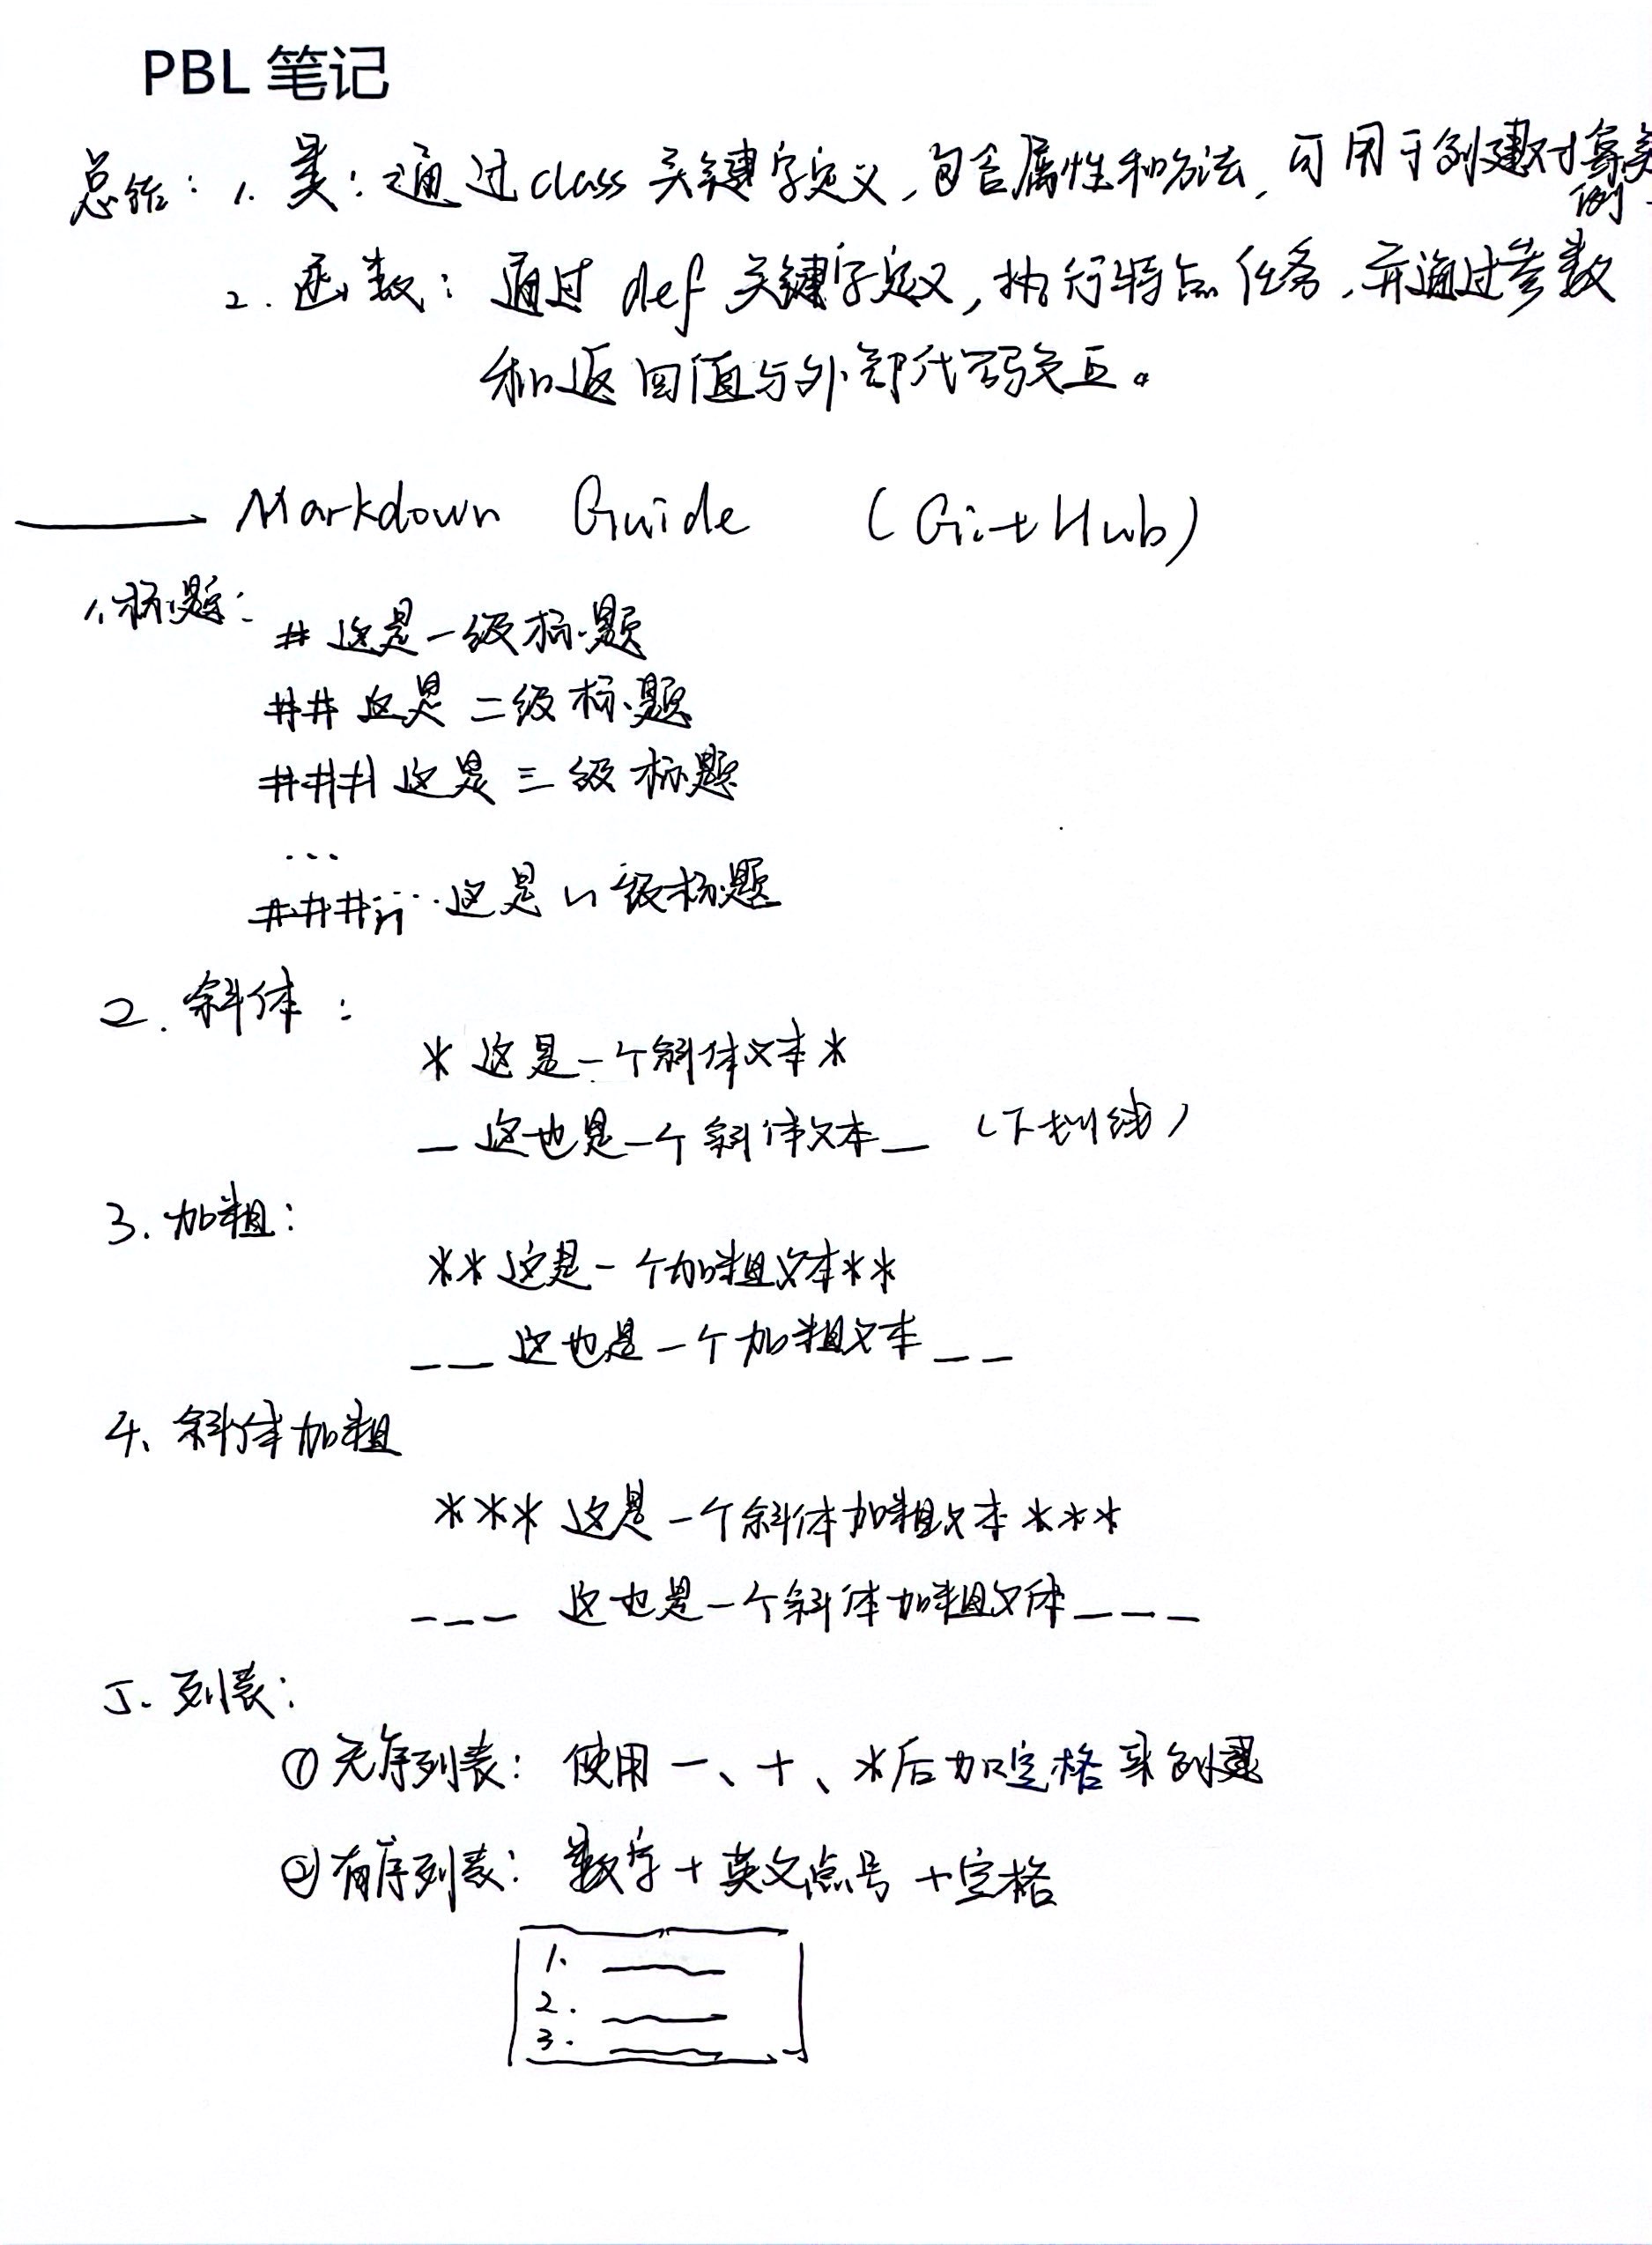 PBL 笔记
总结：1. 类：通过class关键字定义，包含属性和方法，可用于创建对象实
例
2. 函数：通过 def 关键字定义，执行特点任务，并通过参数
和返回值与外部代码交互。
Markdown Guide （GitHub）
1.标题：
# 这是一级标题
## 这是二级标题
### 这是三级标题
...
###… 这是n级标题
2. 斜体：
* 这是一个斜体文本 *
_ 这也是一个斜体文本 _ （下划线）
3. 加粗：
** 这是一个加粗文本 **
__ 这也是一个加粗文本 __
4、斜体加粗
*** 这是一个斜体加粗文本 ***
___ 这也是一个斜体加粗文体 ___
5. 列表：
① 无序列表：使用 -、+、*后加空格来创建
② 有序列表：数字 + 英文点号 + 空格
1.
2.
3.